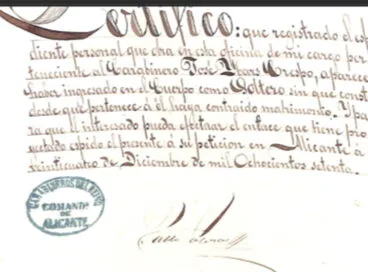 Certifico: que registrado el espe
diente personal que obra en esta oficina de mi cargo per
teneciente al Carabinero José Ybars Crespo, aparece
haber ingresado en el Cuerpo como Soltero sin que conste
desde que pertenece á él haya contraido matrimonio. Y pa
ra que el interesado pueda efectuar el enlace que tiene pro
yectado espido el presente á su peticion en Alicante á
veinticuatro de Diciembre de mil Ochocientos setenta.
CARABINEROS DEL REINO
COMANDA
DE
ALICANTE